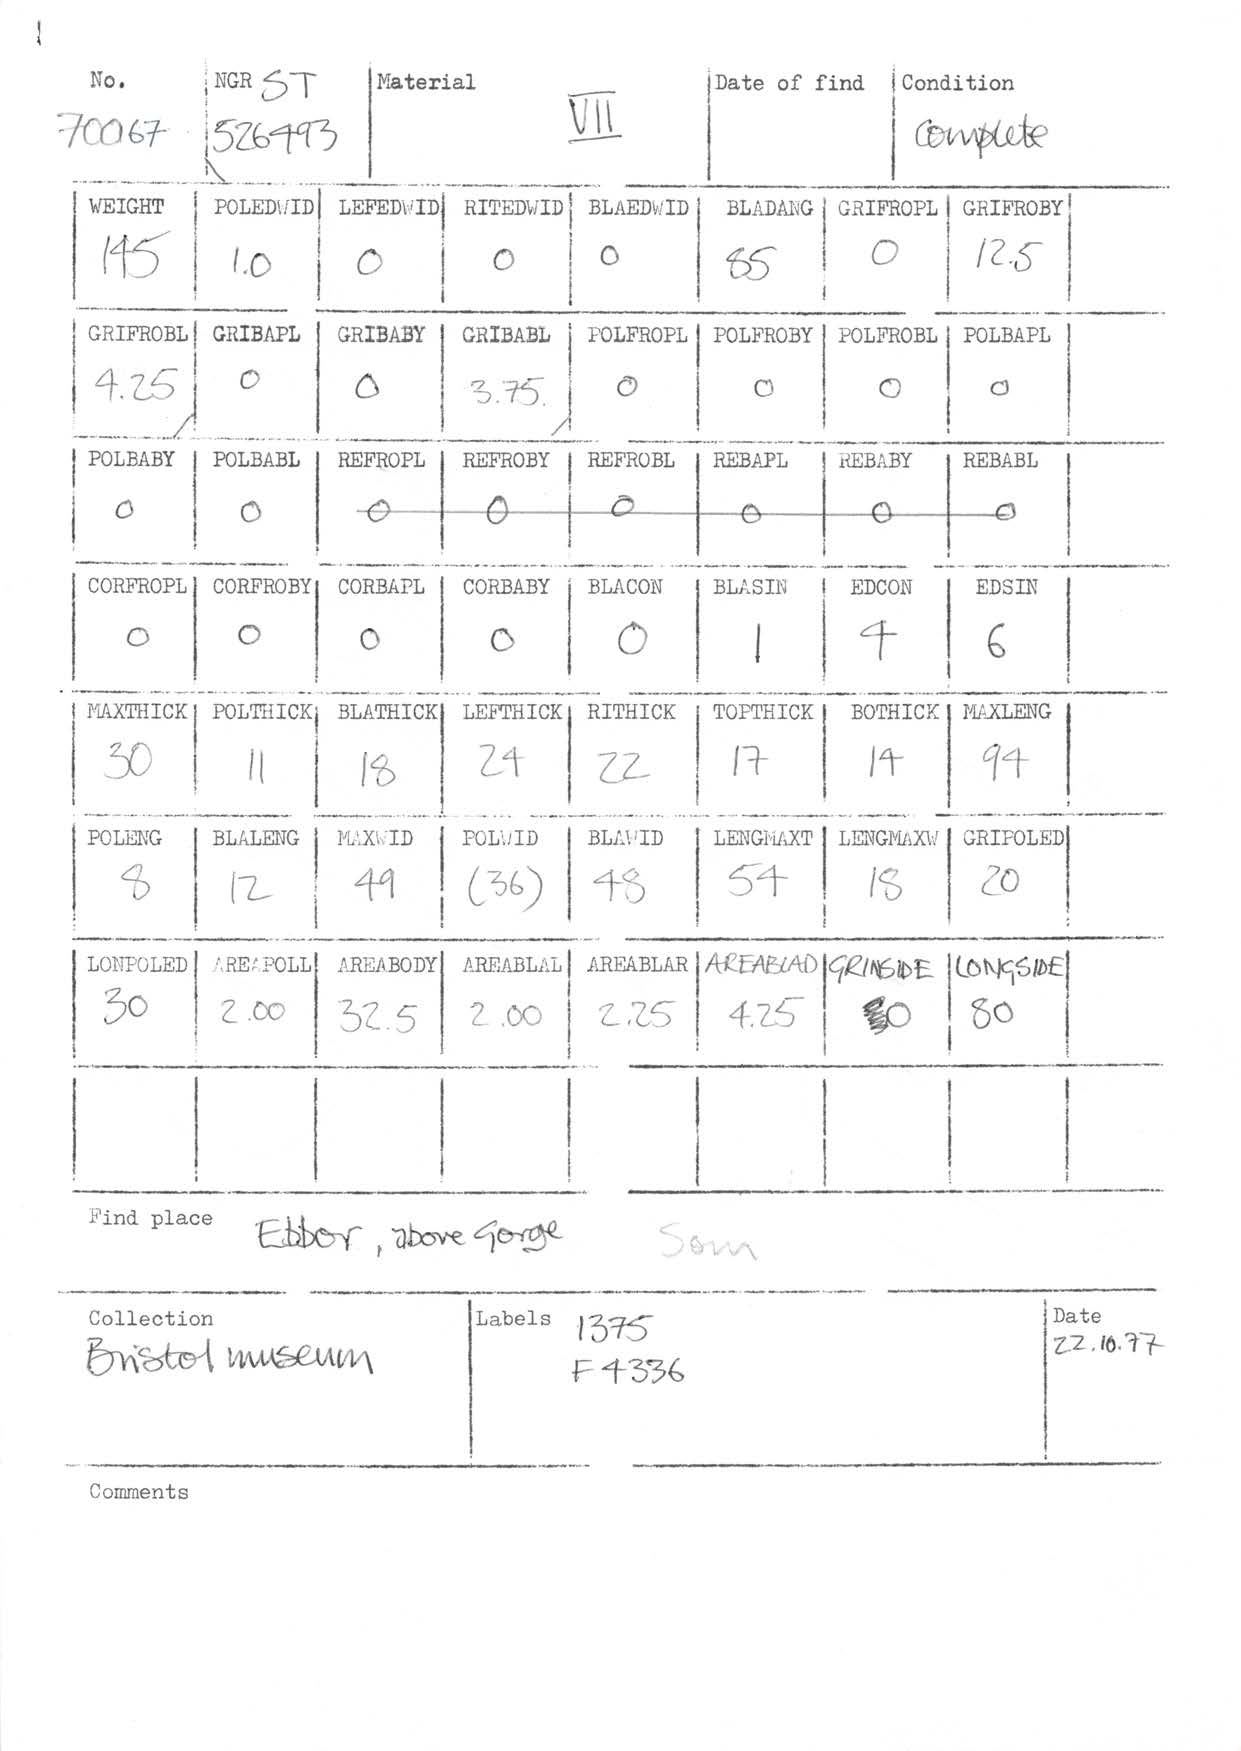 No. NGR ST Material VII Date of find Condition
70067 526493 complete
WEIGHT POLEDWID LEFEDWID RITEDWID BLAEDWID BLADANG GRIFROPL GRIFROBY
145 1.0 0 0 0 85 0 12.5
GRIFROBL GRIBAPL GRIBABY GRIBABL POLFROPL POLFROBY POLFROBL POLBAPL
4.25 0 0 3.75. 0 0 0 0
POLBABY POLBABL REFROPL REFROBY REFROBL REBAPL REBABY REBABL
0 0 0 0 0 0 0 0
CORFROPL CORFROBY CORBAPL CORBABY BLACON BLASIN EDCON EDSIN
0 0 0 0 0 1 4 6
MAXTHICK POLTHICK BLATHICK LEFTHICK RITHICK TOPTHICK BOTHICK MAXLENG
30 11 18 24 22 17 14 94
POLENG BLALENG MAXWID POLWID BLAWID LENGMAXT LENGMAXW GRIPOLED
8 12 49 (36) 48 54 18 20
LONPOLED AREAPOLL AREABODY AREABLAL AREABLAR AREABLAD GRINSIDE LONGSIDE
30 2.00 32.5 2.00 2.25 4.25 0 80
Find place Ebbor, above Gorge Som
Collection Labels 1375 Date
Bristol museum F4336 22.10.77
Comments